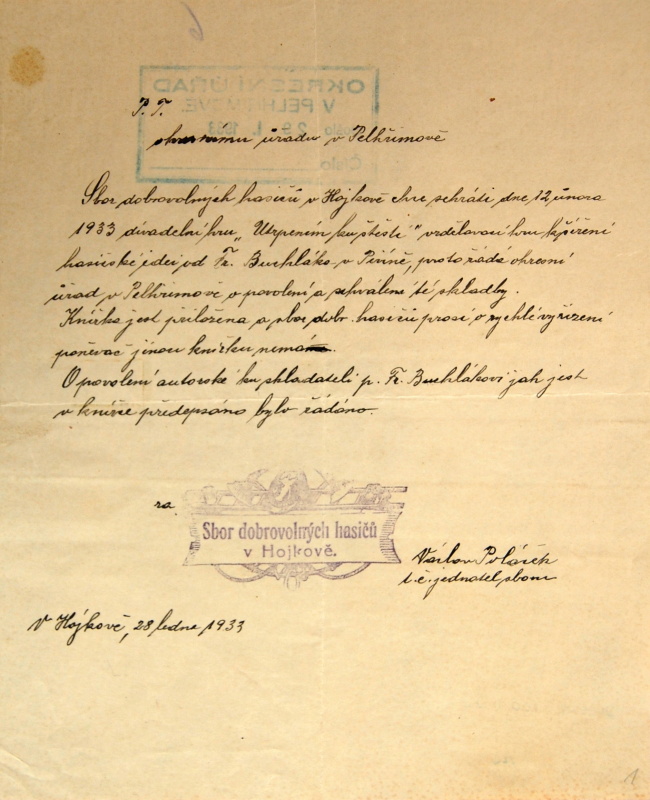 OKRESNÍ ÚŘAD
V PELHŘIMOVĚ
Došlo 29. I. 1933
Číslo
P. T.
okresnímu úřadu v Pelhřimově
Sbor dobrovolných hasičů v Hojkově chce sehráti dne 12 února
1933 divadelní hru „Utrpením ku štěstí" vzdělavou hru k šíření
hasičské ideei od Fr. Buchláka v Písině, proto řádá okresní
úřad v Pelhřimově o povolení a schválení té skladby.
Knížka jest přiložena a sbor dobr. hasičů prosí o rychlé vyřízení
poněvač jinou knížku nemá
O povolení autorské ku skladateli p. Fr. Buchlákovi jak jest
v knížce předepsáno bylo řádáno.
za
Sbor dobrovolných hasičů
v Hojkově.
Václav Polášek
t. č. jednatel sboru
V Hojkově, 28 ledna 1933
1